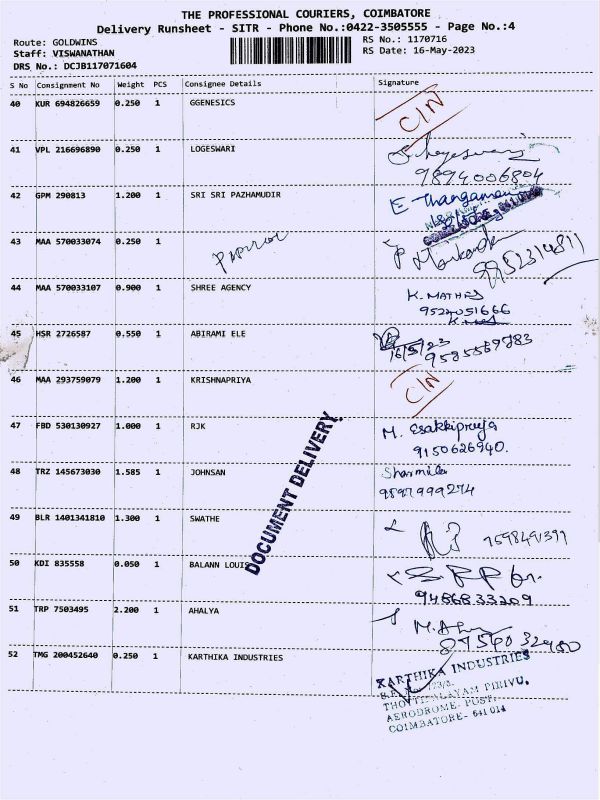 THE PROFESSIONAL COURIERS, COIMBATORE
Delivery Runsheet - SITR - Phone No.:0422-3505555 - Page No.:4
Route: GOLDWINS RS No.: 1170716
Staff: VISWANATHAN RS Date: 16-May-2023
DRS No.: DCJB117071604
S No Consignment No Weight PCS Consignee Details Signature
40 KUR 694826659 0.250 1 GGENESICS C/N
41 VPL 216696890 0.250 1 LOGESWARI
9894006804
42 GPM 290813 1.200 1 SRI SRI PAZHAMUDIR E. Thangamani
43 MAA 570033074 0.250 1
9952314811
44 MAA 570033107 0.900 1 SHREE AGENCY K. MATHES
9524051666
45 HSR 2726587 0.550 1 ABIRAMI ELE 16/5/23
46 MAA 293759079 1.200 1 KRISHNAPRIYA C/N
47 FBD 530130927 1.000 1 RJK M. Esakkipreeja
9150626940.
48 TRZ 145673030 1.585 1 JOHNSAN Sharmila
9897999274
DOCUMENT DELIVERY
49 BLR 1401341810 1.300 1 SWATHE
50 KDI 835558 0.050 1 BALANN LOUIS
9486833209
51 TRP 7503495 2.200 1 AHALYA
52 TMG 200452640 0.250 1 KARTHIKA INDUSTRIES
KARTHIKA INDUSTRIES
PIRIVU,
AERODROME POST,
COIMBATORE - 641 014